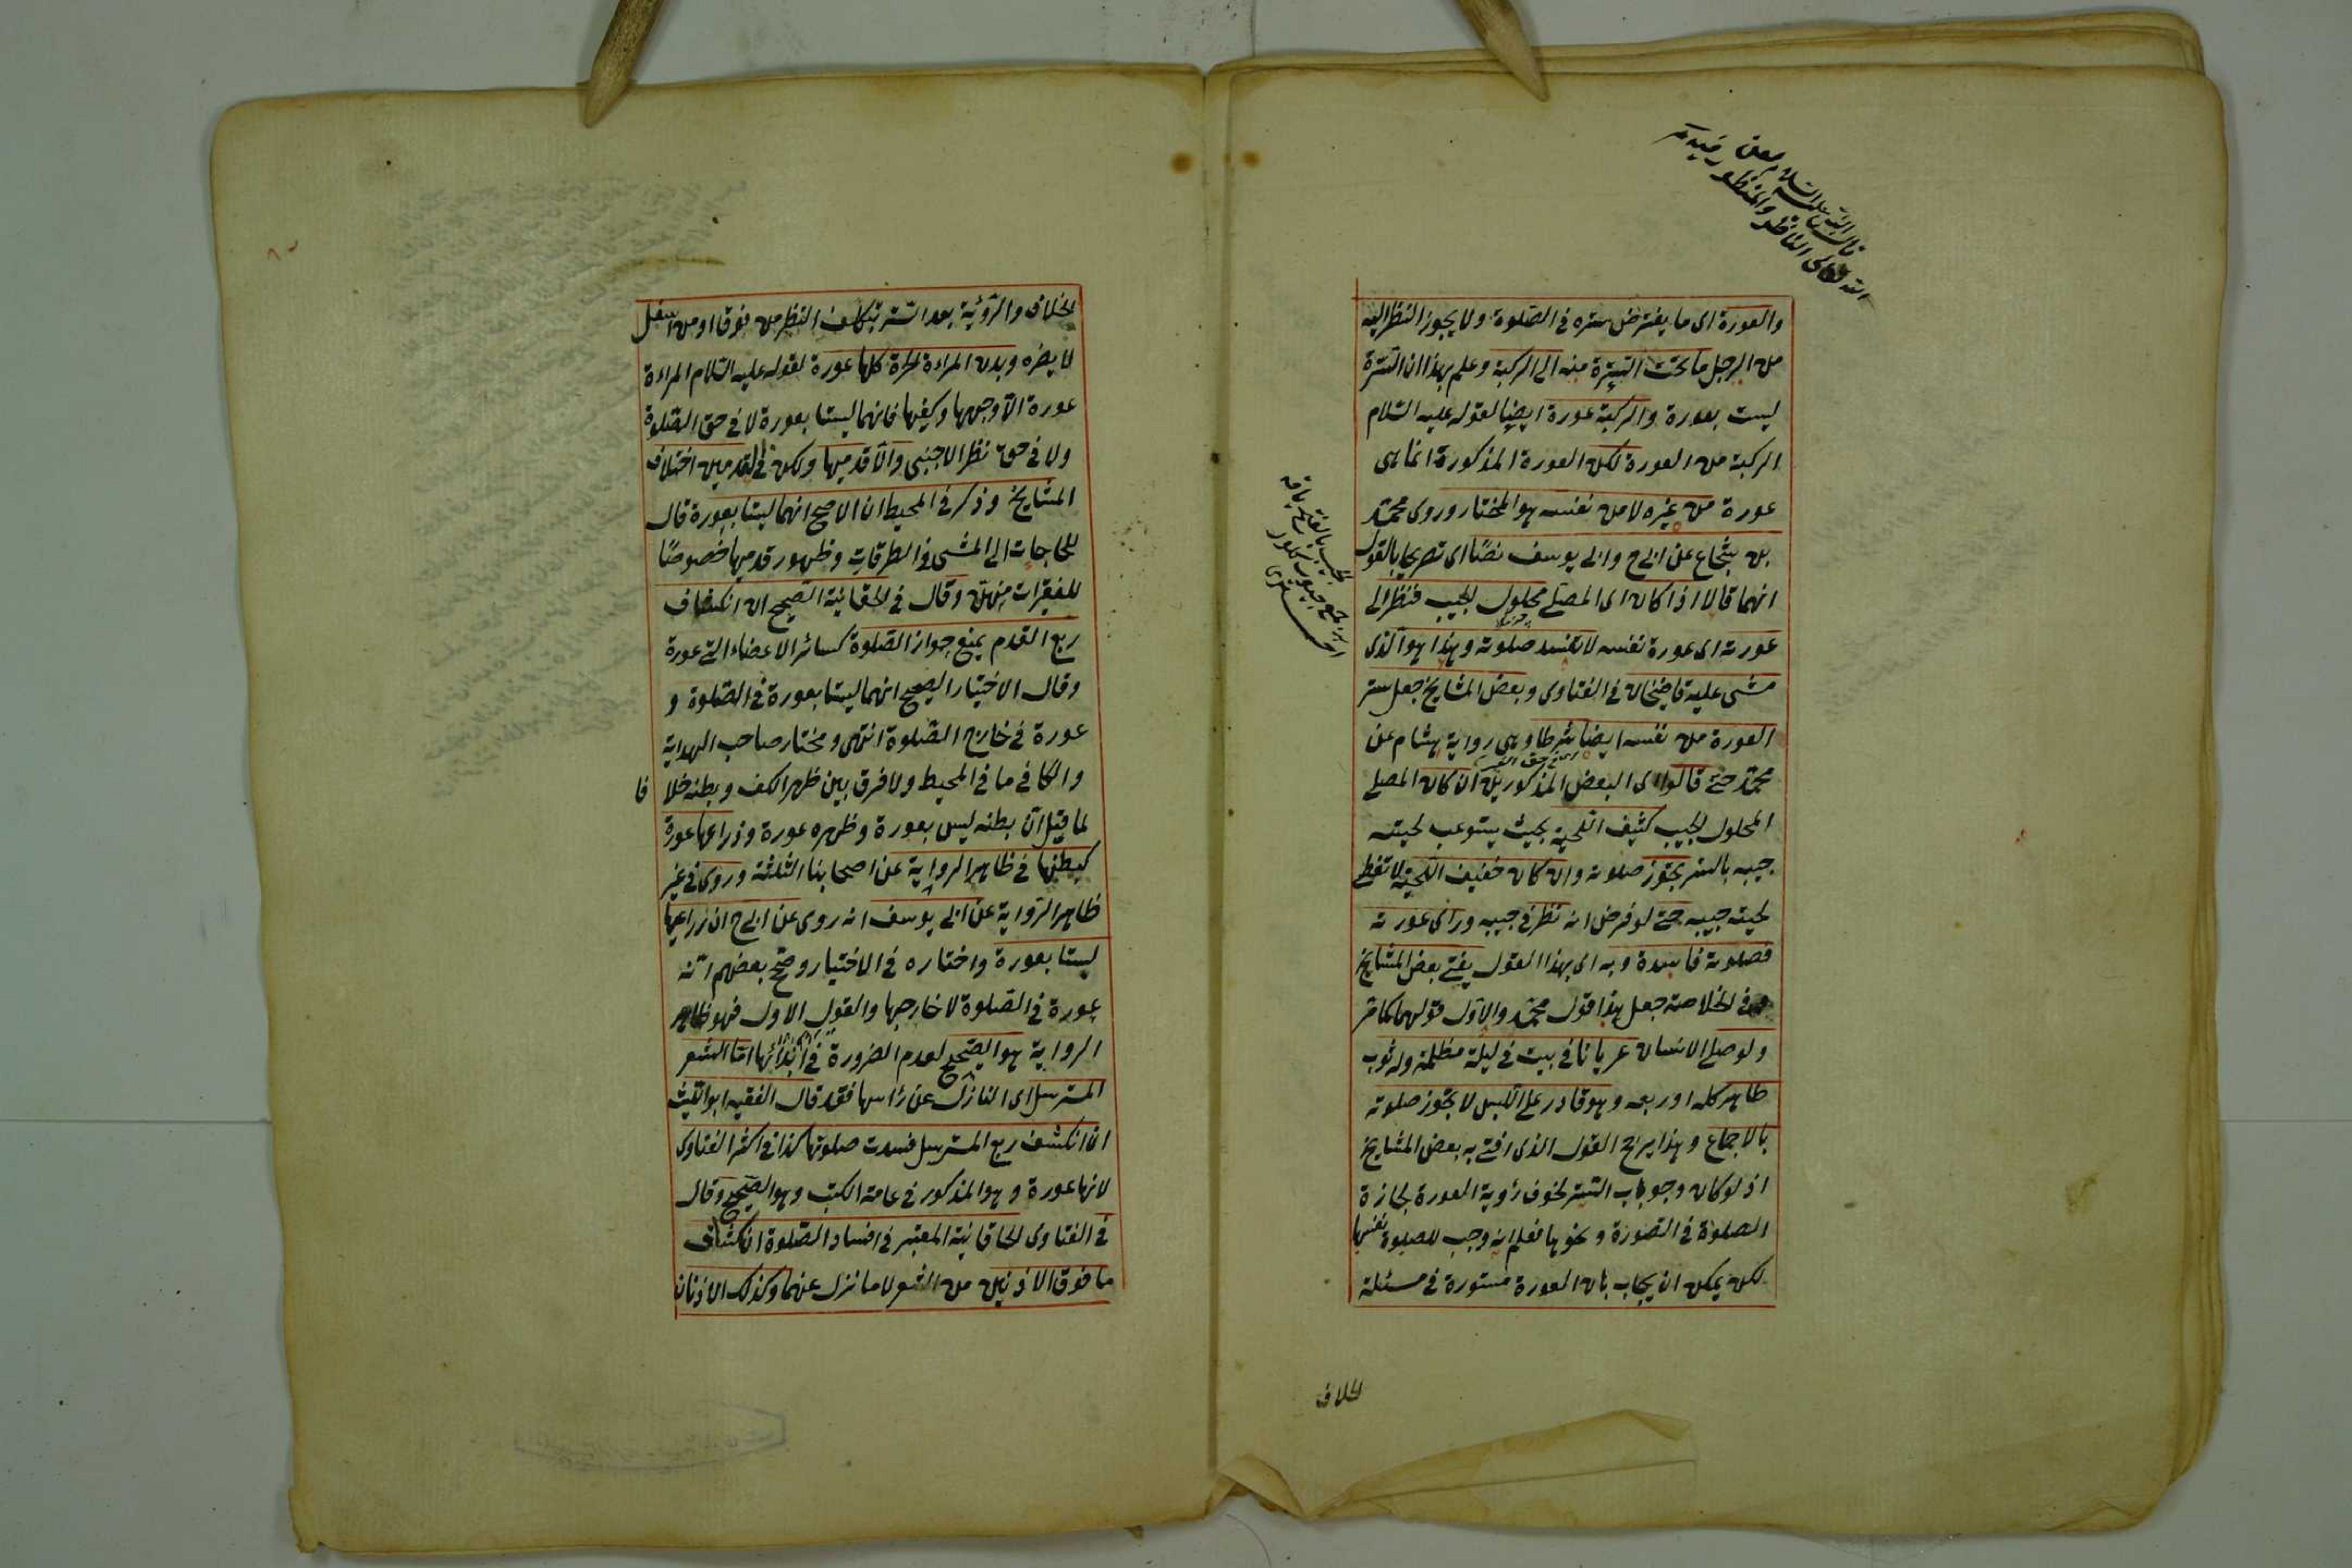 قال النبي عليه السلام لعن
الله تعالى الناظر والمنظور
والعورة اى ما يفترض ستره فى الصلوة ولا يجوز النظر اليه
من الرجل ما تحت السرة منه الى الركبة وعلم بهذا ان السرة
ليست بعورة والركبة عورة ايضا لقوله عليه السلام
الركبة من العورة لكن العورة المذكورة انما هى
عورة من غيره لا من نفسه هو المختار وروى محمد
بن شجاع عن ابى ح وابى يوسف نصا اى تصريحا بالقول
انهما قالا اذا كان اى المصلى محلول الجيب فنظر الى
عورته اى عورة نفسه لا تفسد صلوته وهذا هو الذى
مشى عليه قاضيخان فى الفتاوى وبعض المشايخ جعل ستر
العورة من نفسه ايضا شرطا وهى رواية هشام عن
محمد حتى قالوا اى البعض المذكورين ان كان المصلى
المحلول الجيب كثيف اللحية بحيث يستوعب لحيته
جيبه بالستر يجوز صلوته وان كان خفيف اللحية لا تغطى
لحيته جيبه حتى لو فرض انه نظر فى جيبه ورأى عورته
فصلوته فاسدة وبه اى بهذا القول يفتى بعض المشايخ
وفى الخلاصة جعل هذا قول محمد والاول قولهما كما مر
ولو صلى الانسان عريانا فى بيت فى ليلة مظلمة وله ثوب
طاهر كله او ربعه وهو قادر على اللبس لا يجوز صلوته
بالاجماع وهذا يرجح القول الذى افتى به بعض المشايخ
اذ لو كان وجوب الستر لخوف رؤية العورة لجازة
الصلوة فى الصورة ونحوها فعلم انه وجب للصلوة نفسها
لكن يمكن ان يجاب بان العورة مستورة فى مسئلة
الخلاف
الخلاف والرؤية بعد الستر بتكلف النظر من فوق او من اسفل
لا يضره وبدن المراءة الحرة كلها عورة لقوله عليه السلام المراءة
عورة الا وجهها وكفيها فانهما ليستا بعورة لا فى حق الصلوة
ولا فى حق نظر الاجنبى والا قدميها ولكن فى القدمين اختلاف
المشايخ وذكر فى المحيط ان الاصح انهما ليستا بعورة قال
للحاجات الى المشى فى الطرقات وظهور قدميها خصوصا
للفقيرات منهن وقال فى الخاقانية الصحيح ان انكشاف
ربع القدم يمنع جواز الصلوة كسائر الاعضاء التى عورة
وقال الاختيار الصحيح انهما ليستا بعورة فى الصلوة و
عورة فى خارج الصلوة انتهى ومختار صاحب الهداية
والكافى ما فى المحيط ولا فرق بين ظهر الكف وبطنه خلا فا
لما قيل ان بطنه ليس بعورة وظهره عورة وذراعها عورة
كبطنها فى ظاهر الرواية عن اصحابنا الثلثة وروى فى غير
ظاهر الرواية عن ابى يوسف انه روى عن ابى ح ان زراعيها
ليستا بعورة واختاره فى الاختيار وصحح بعضهم انه
عورة فى الصلوة لا خارجها والقول الاول فهو ظاهر
الرواية هو الصحيح لعدم الضرورة فى ابدائها اما الشعر
المسترسل اى النازل عن رأسها فقد قال الفقيه ابو الليث
ان انكشف ربع المسترسل فسدت صلوتها كذا فى اكثر الفتاوى
لانها عورة وهو المذكور فى عامة الكتب وهو الصحيح وقال
فى الفتاوى الخاقانية المعتبر فى افساد الصلوة انكشاف
ما فوق الاذنين من الشعر لا ما نزل عنهما وكذلك الاذنان